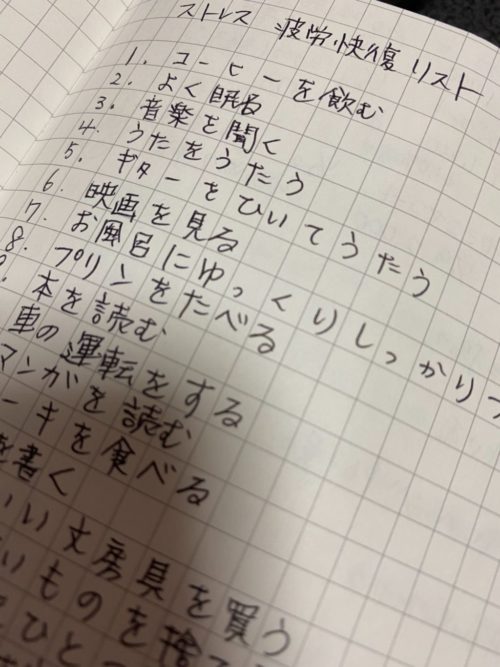 ストレス 疲労快復リスト
1. コーヒーを飲む
2. よく眠る
3. 音楽を聞く
4. うたをうたう
5. ギターをひいてうたう
6. 映画を見る
7. お風呂にゆっくりしっかり
8. プリンをたべる
本を読む
車の運転をする
マンガを読む
ーキを食べる
を書く
いい文房具を買う
いものを捨
ひと